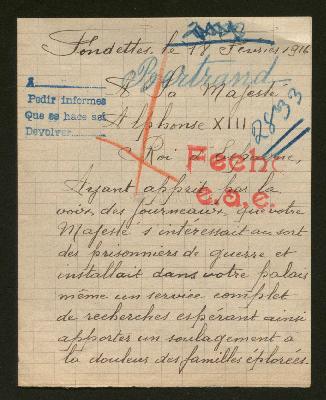 Fondettes, le 18 Février 1916
Bertrand
A
Pedir informes
Que se hace así
Devolver
A Sa Majesté
Alphonse XIII
2833
Roi d'Espagne,
Feché
e.a.e.
Ayant appris par la
voix, des journeaux, que votre
Majesté s'intéressait au sort
des prisonniers de guerre et
installait dans votre palais
même un service complet
de recherches espérant ainsi
apporter un soulagement à
la douleur des familles éplorées.